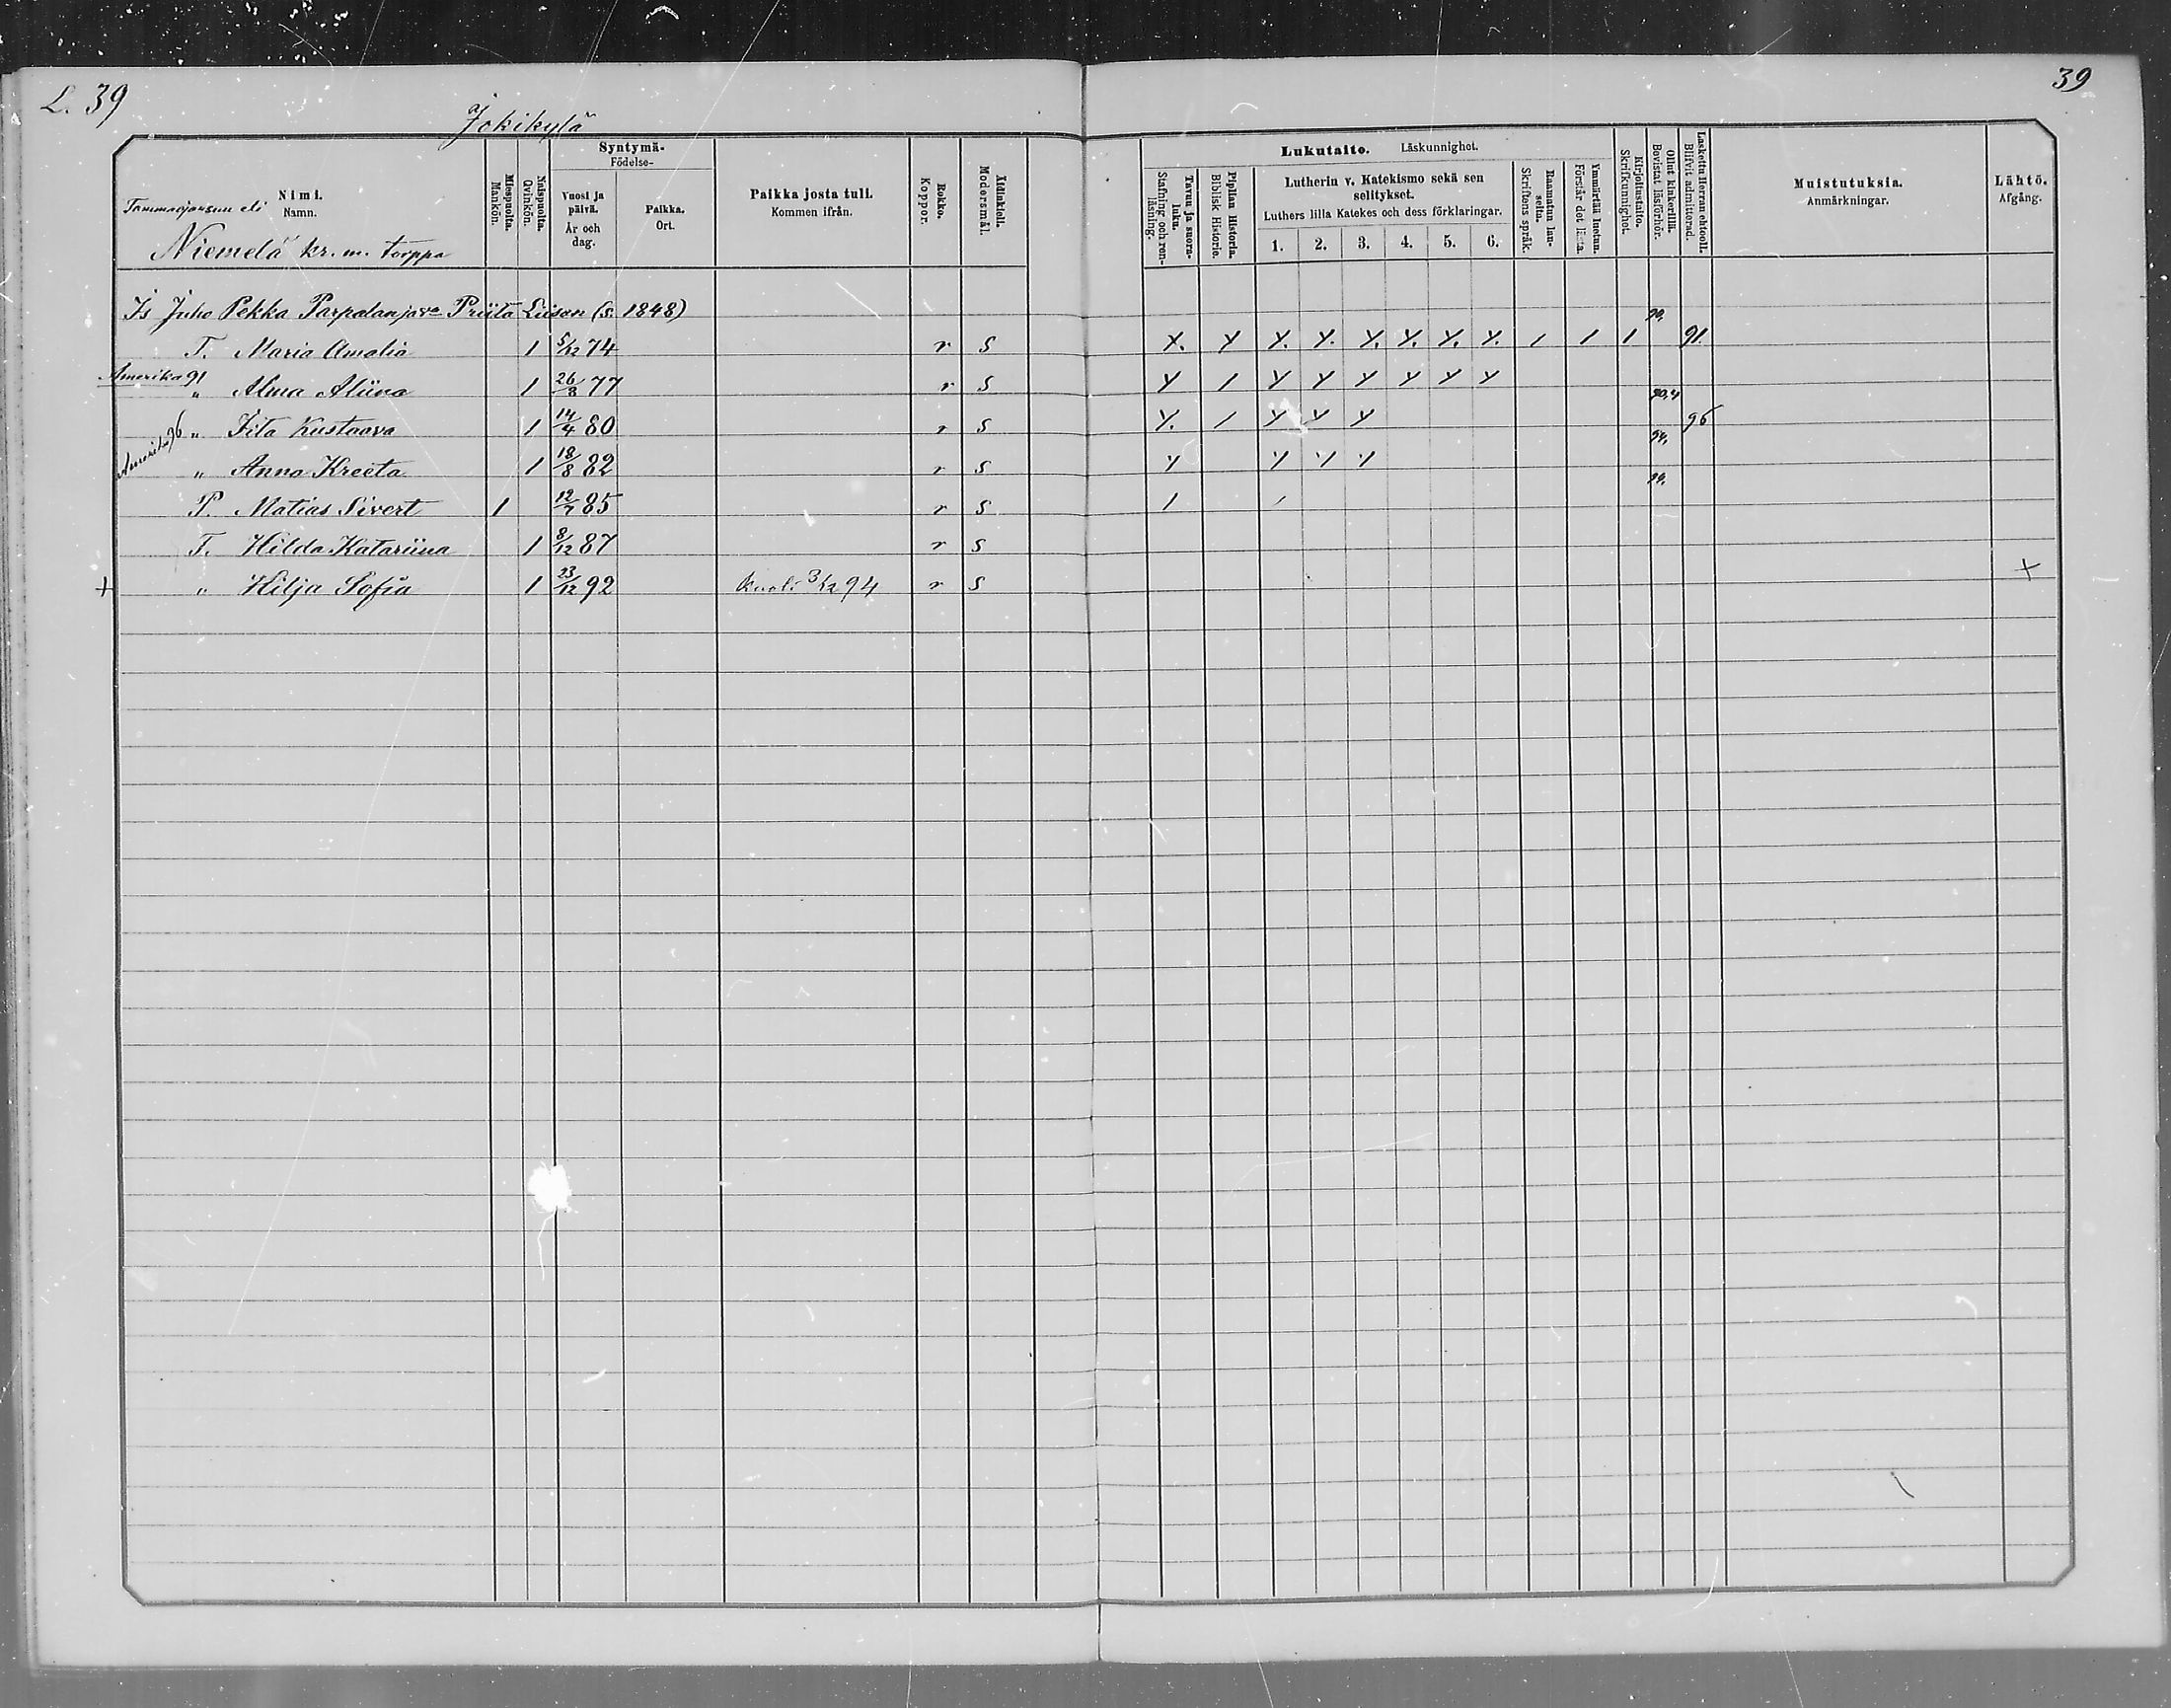 L. 39
39
Jokikylä
Nimi.
Namn.
Tammaojansuu eli
Niemelä kr. m. torppa
Miespuolia.
Mankön.
Naispuolia.
Qvinkön.
Syntymä-
Födelse-
Vuosi ja päivä.
År och dag.
Paikka.
Ort.
Paikka josta tuli.
Kommen ifrån.
Rokko.
Koppor.
Äidinkieli.
Modersmål.
Lukutaito. Läskunnighet.
Tavuu ja suora-luku.
Stafning och ren-läsning.
Piplian Historia.
Biblisk Historie.
Lutherin v. Katekismo sekä sen selitykset.
Luthers lilla Katekes och dess förklaringar.
1. 2. 3. 4. 5. 6.
Raamatun lau-seita.
Skriftens språk.
Ymmärtää luetun.
Förstår det lästa.
Kirjoitustaito.
Skrifkunnighet.
Ollut kinkerillä.
Bevistat läsförhör.
Laskettu Herran ehtoolle.
Blifvit admitterad.
Muistutuksia.
Anmärkningar.
Lähtö.
Afgång.
Is Juho Pekka Parpalanja va Priita Liisan (s. 1848)
T. Maria Amalia 1 5/12 74 r S 90. 91
Amerika 91
" Alma Aliina 1 26/8 77 r S
" Iita Kustaava 1 14/4 80 r S 96
Amerika 96
" Anna Kreeta 1 18/8 82 r S
P. Matias Sivert 1 12/7 85 r S
T. Hilda Katariina 1 8/12 87 r S
+ " Hilja Sofia 1 23/12 92 Kuoli 3/12 94 r S +